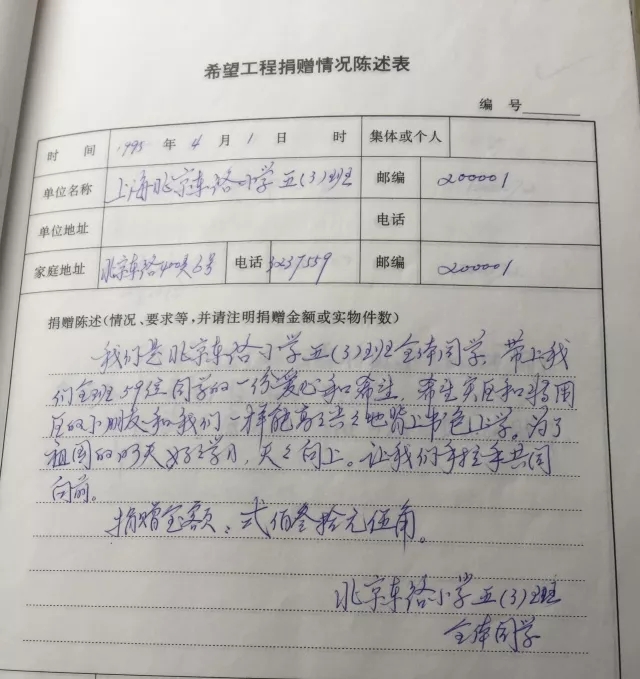 希望工程捐赠情况陈述表
编 号
时 间 1995 年 4 月 1 日 时 集体或个人
单位名称 上海北京东路小学五(3)班 邮编 200001
单位地址 电话
家庭地址 北京东路400弄6号 电话 3237559 邮编 200001
捐赠陈述(情况、要求等,并请注明捐赠金额或实物件数)
我们是北京东路小学五(3)班全体同学,带上我
们全班59位同学的一份爱心和希望,希望灾区和贫困
区的小朋友和我们一样能高高兴兴地背上书包上学。为了
祖国的明天好好学习,天天向上。让我们手拉手共同
向前。
捐赠金额:弍佰叁拾元伍角。
北京东路小学五(3)班
全体同学